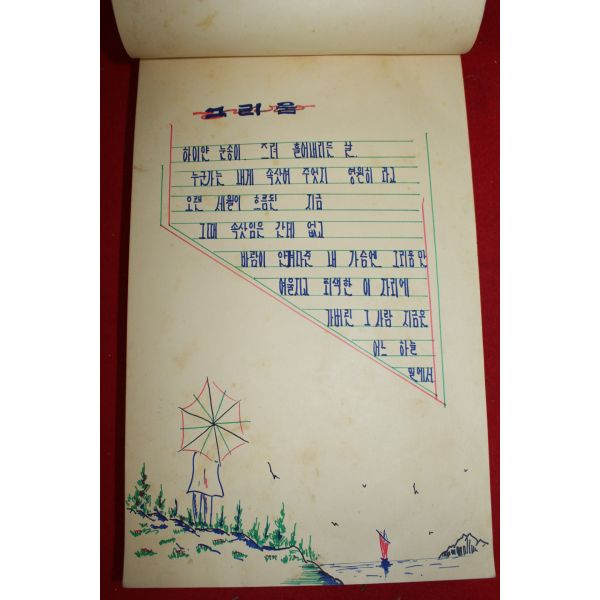 그리움
하이얀 눈송이. 흩어내리든 날.
누군가는 내게 속삭여 주었지 영원히 라고
오랜 세월이 흐름된 지금
그때 속삭임은 간데 없고
바람이 안겨다준 내 가슴엔 그리움만
여울지고 퇴색한 이 자리에
가버린 그 사람 지금은
어느 하늘
밑에서